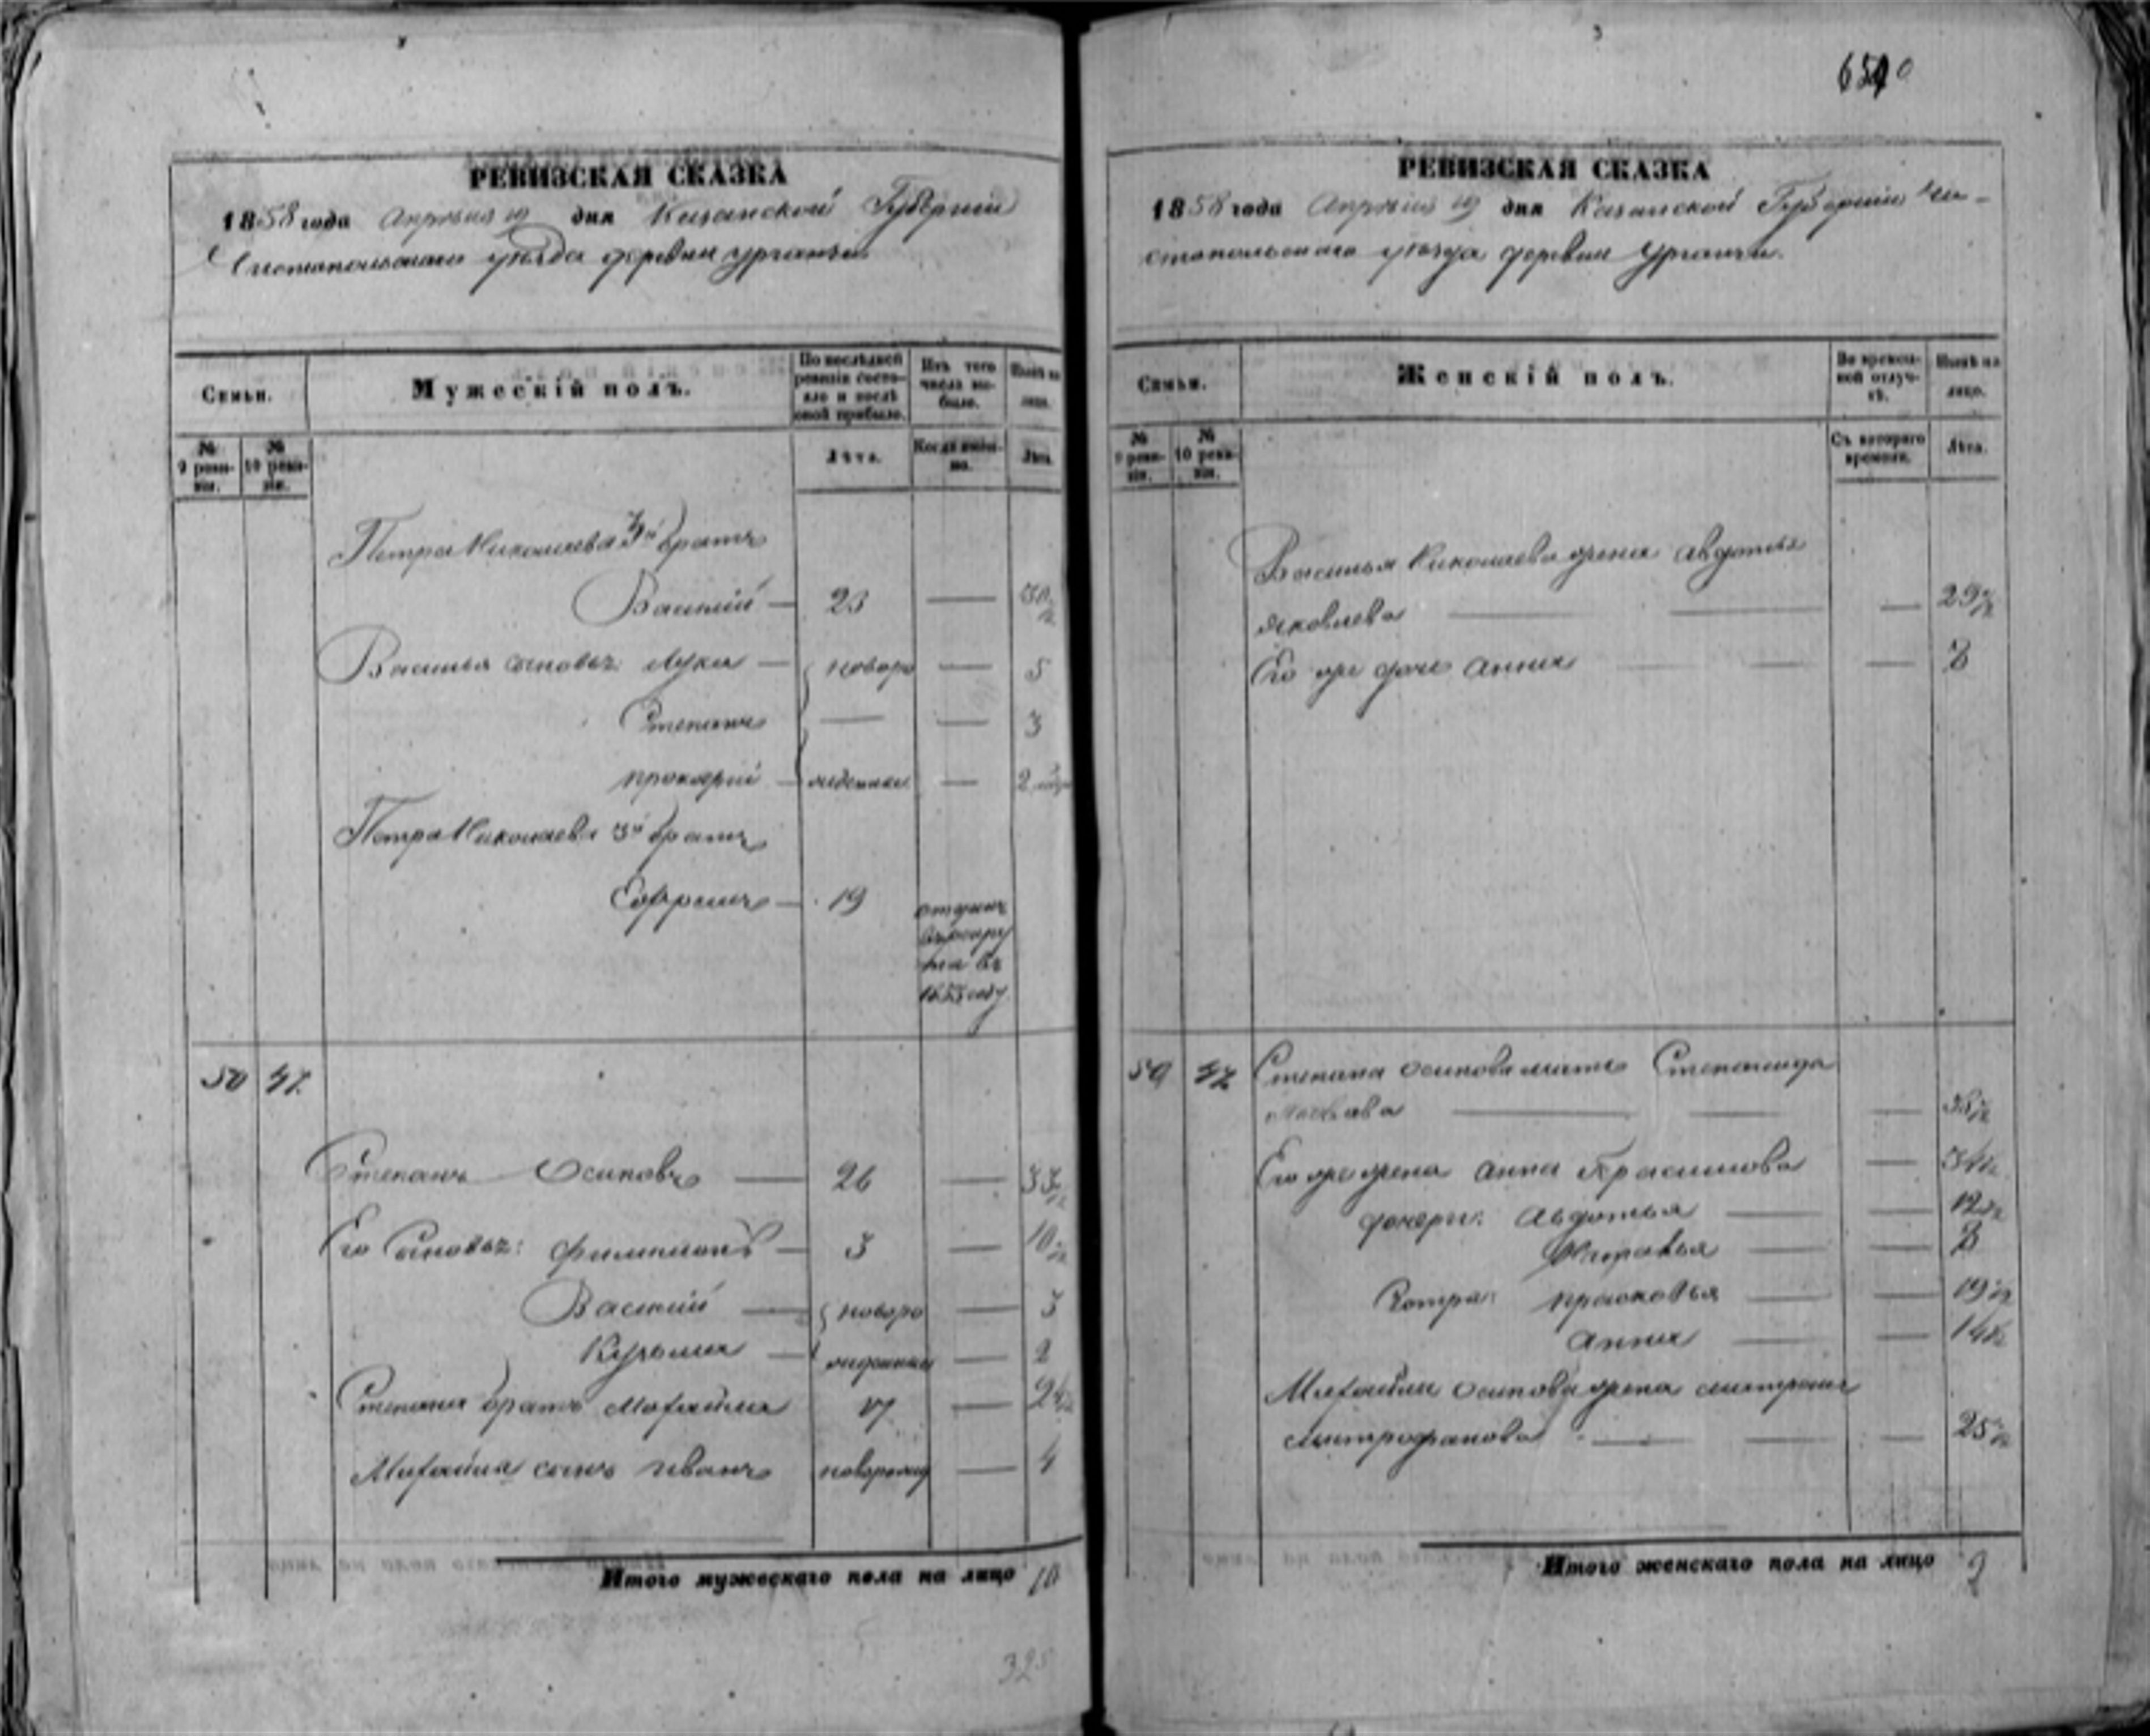 6510
РЕВИЗСКАЯ СКАЗКА
1858 года Апрѣля дня Казанской Губерніи
Чистопольскаго уѣзда деревни Урганчи
Семьи.
Мужескій полъ.
По послѣдней ревизіи состояло и послѣ оной прибыло.
Изъ того числа выбыло.
Нынѣ на лицо.
№ 9 ревизіи.
№ 10 ревизіи.
Лѣта.
Когда именно.
Лѣта.
Петра Николаева 3й братъ
Василій — 23 — 30 ½
Василья сыновья: Лука — новоро — 5
Степанъ — — 3
— жденные — 2
Петра Николаева братъ
Ефремъ — 19 отданъ
въ рекру
ты въ
1855 году
50 47
Степанъ Осиповъ — 26 — 33 ½
Его Сыновья: Филимонъ — 3 — 10 ½
Василій — новоро — 3
Кузьма — жденные — 2
Степана братъ Михайла 17 — 24 ½
Михайлы сынъ Иванъ новорожд — 4
Итого мужескаго пола на лицо 10
325
РЕВИЗСКАЯ СКАЗКА
1858 года Апрѣля дня Казанской Губерніи Чи-
стопольскаго уѣзда деревни Урганчи.
Семьи.
Женскій полъ.
Во временной отлучкѣ.
Нынѣ на лицо.
№ 9 ревизіи.
№ 10 ревизіи.
Съ котораго времени.
Лѣта.
Василья Николаева жена Авдотья
Яковлева — — — 29 ½
Его же дочь Анна — — — 8
50 47 Степана Осипова мать Степанида
— — —
Его же жена Анна Герасимова — 34 ½
дочери: Авдотья — — 12 ½
Наталья — — 8
Сестра: Прасковья — — 19 ½
Анна — — 14 ½
Михайлы Осипова жена
Митрофанова — — — 25 ½
Итого женскаго пола на лицо